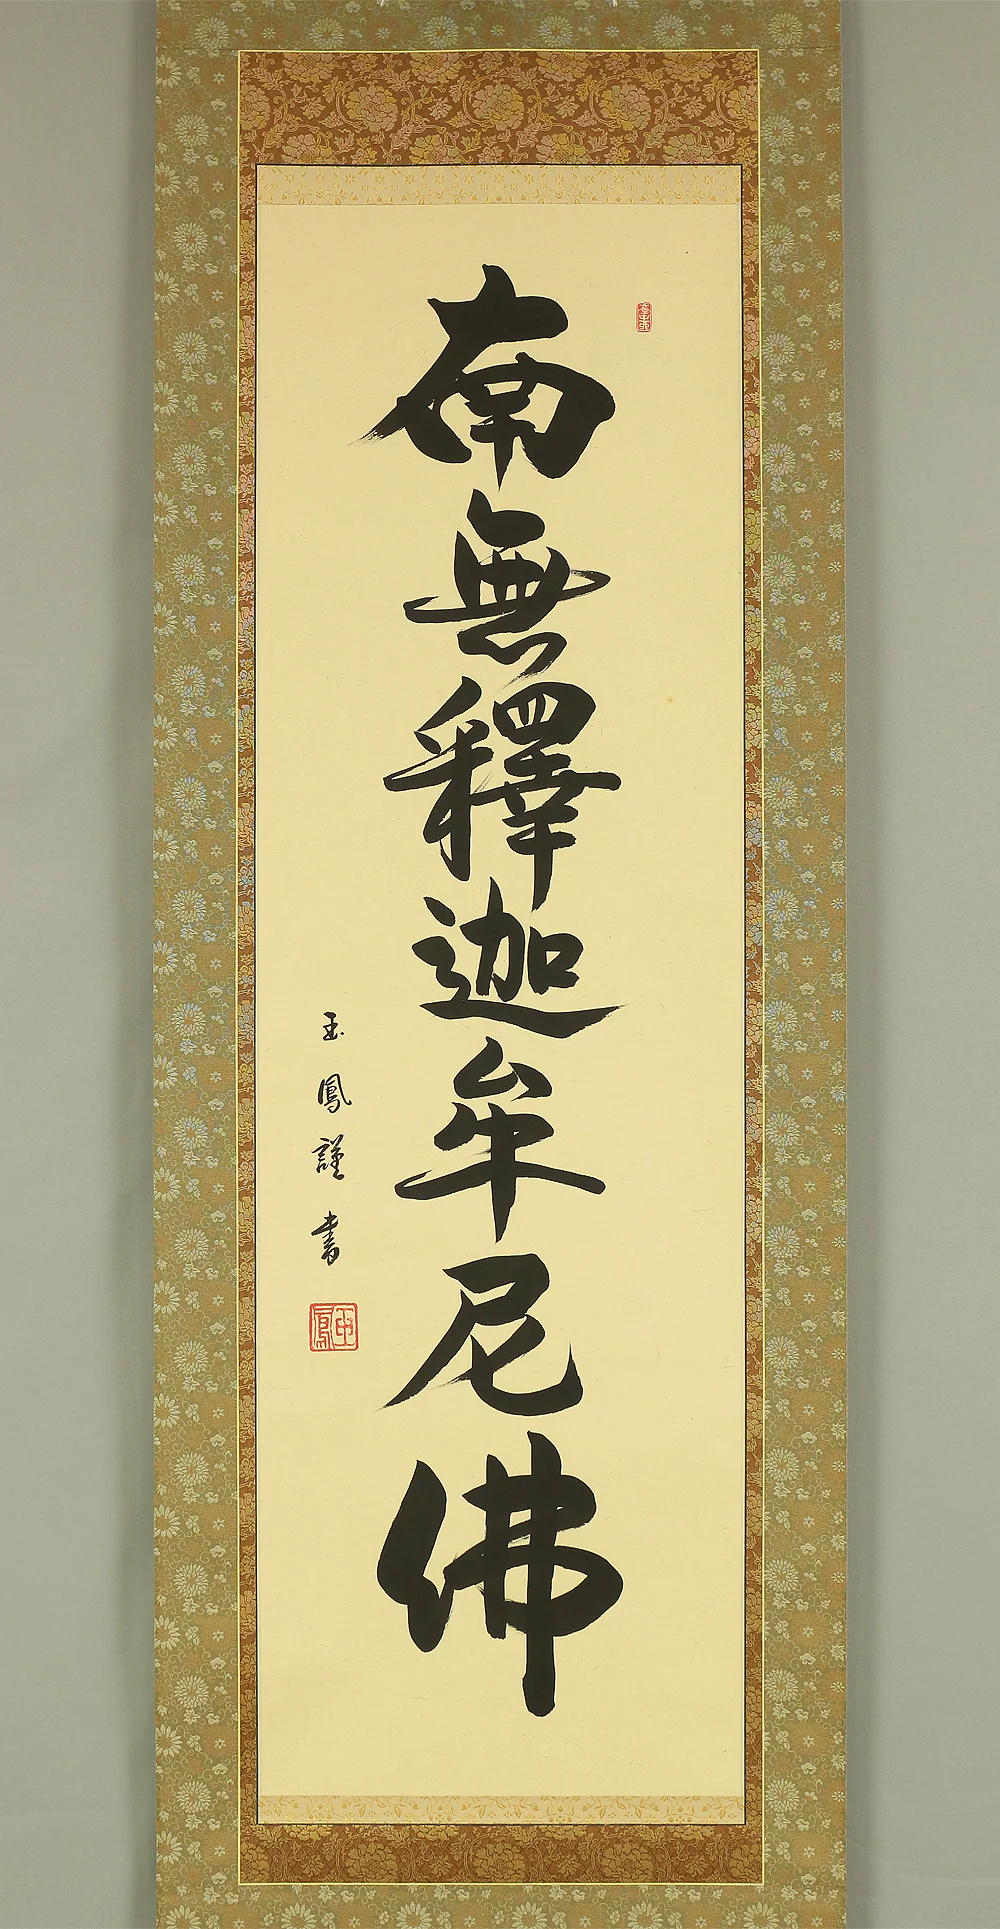 南無釋迦牟尼佛
玉鳳謹書
玉鳳